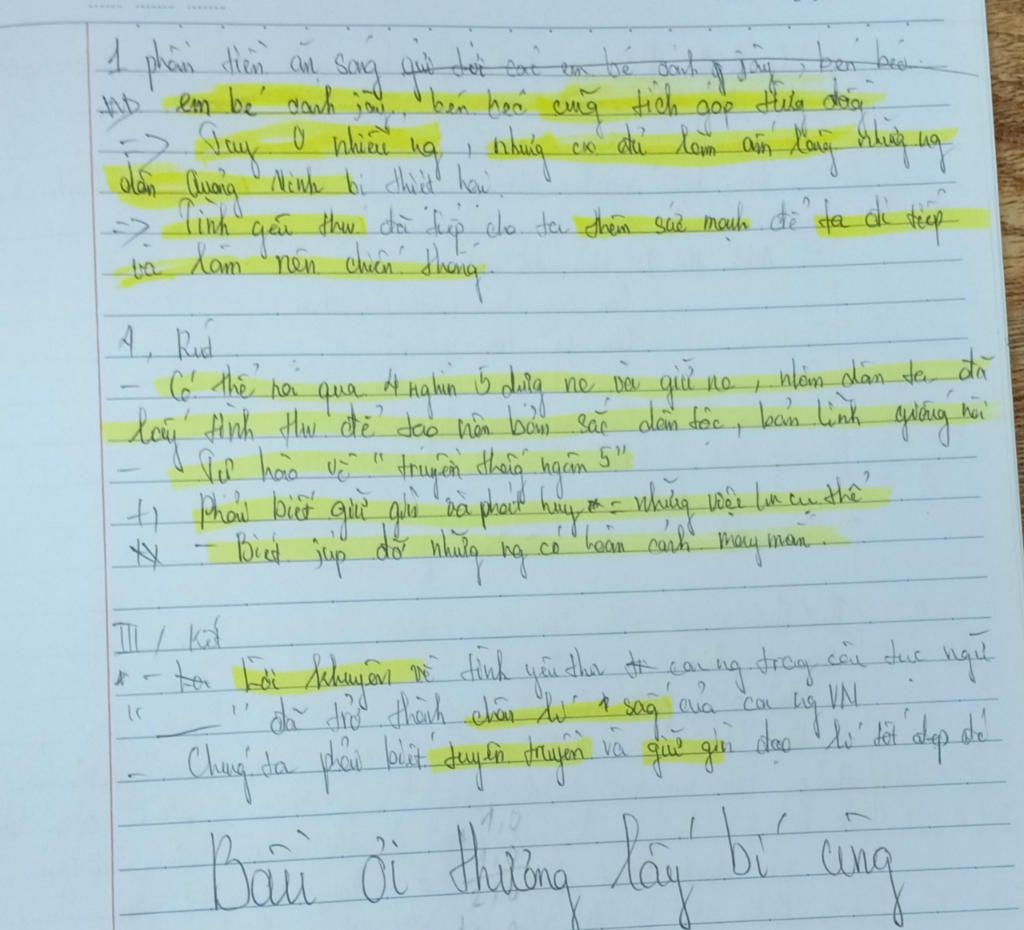 1 phần tiền ăn sáng gửi tới các em bé đánh giầy, bán báo
VD em bé đánh jầy, bán báo cũng tích góp từng đồng
=> Tuy 0 nhiều ng, nhưng cx đủ làm ấm lòng những ng
dân Quảng Ninh bị thiệt hại
=> Tình yêu thư đã tiếp cho ta thêm sức mạnh để ta đi tiếp
và làm nên chiến thắng.
4, Rút
- Có thể nói qua 4 nghìn 5 dựng nc và giữ nc, nhân dân ta đã
lấy tình thư để tạo nên bản sắc dân tộc, bản lĩnh giống nòi
- Tự hào về "truyền thống ngàn 5"
+) Phải biết giữ gìn và phát huy = những việc cụ thể
- Biết júp đỡ những ng có hoàn cảnh may mắn.
III / Kết
- Lời khuyên về tình yêu thư con ng trong câu tục ngữ
"___" đã trở thành chân lí sống của con ng VN
- Chúng ta phải biết tuyên truyền và giữ gìn đạo lí tốt đẹp đó
Bầu ơi thương lấy bí cùng